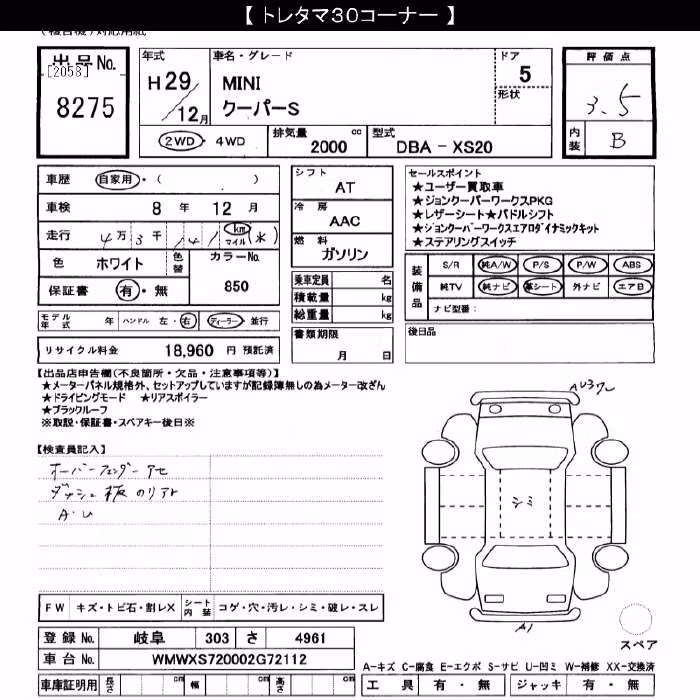 【 トレタマ30コーナー 】
(複合機)対応用紙
出品No.
[2058]
8275
年式
H 29
12 月
車名・グレード
MINI
クーパーS
ドア
5
形状
評価点
3.5
内装
B
2WD・4WD
排気量 2000 cc
型式
DBA - XS20
車歴 自家用・( )
車検 8 年 12 月
走行 4万 3千 141 km マイル
色 ホワイト 色替 カラーNo. 850
保証書 有・無
モデル年式 年 ハンドル 左・右 ディーラー・並行
リサイクル料金 18,960 円 預託済
シフト
AT
冷房
AAC
燃料
ガソリン
乗車定員 名
積載量 kg
総重量 kg
書類期限
月 日
セールスポイント
★ユーザー買取車
★ジョンクーパーワークスPKG
★レザーシート★パドルシフト
★ジョンクーパーワークスエアロダイナミックキット
★ステアリングスイッチ
装備品
S/R 純A/W P/S P/W ABS
純TV 純ナビ 革シート 外ナビ エアB
ナビ型番:
後日品
【出品店申告欄(不良箇所・欠品・注意事項等)】
★メーターパネル規格外、セットアップしていますが記録簿無しの為メーター改ざん
★ドライビングモード ★リアスポイラー
★ブラックルーフ
※取説・保証書・スペアキー後日※
【検査員記入】
オーバーフェンダーアセ
ダッシュ板のリアト
A・U
シミ
A1
FW キズ・トビ石・割レX シート内装 コゲ・穴・汚レ・シミ・破レ・スレ
登録No. 岐阜 303 さ 4961
車台No. WMWXS720002G72112
車庫証明用 長さ cm 幅 cm 高さ cm
スペア
A-キズ C-腐食 E-エクボ S-サビ U-凹ミ W-補修 XX-交換済
工具 有・無 ジャッキ 有・無